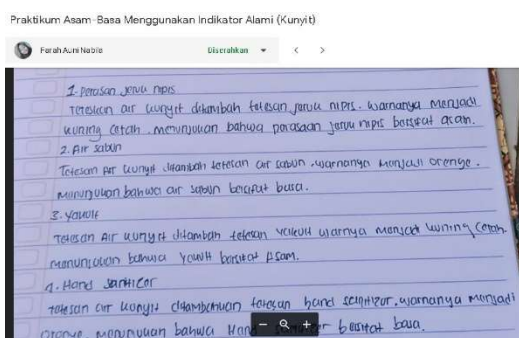 Praktikum Asam-Basa Menggunakan Indikator Alami (Kunyit)
Farah Auni Nabila
Diserahkan
1. Perasan Jeruk nipis
Tetesan air kunyit ditambah tetesan jeruk nipis. warnanya menjadi
kuning cerah. menunjukan bahwa perasaan jeruk nipis bersifat asam.
2. Air sabun
Tetesan air kunyit ditambah tetesan air sabun. warnanya menjadi orenge.
Menunjukan bahwa air sabun bersifat basa.
3. Yakult
Tetesan Air kunyit ditambah tetesan yakult warnya menjadi kuning cerah.
menunjukan bahwa Yakult bersifat Asam.
4. Hand sanitizer
tetesan air kunyit ditambahkan tetesan hand sanitizer. warnanya menjadi
orenye. menunjukan bahwa Hand bersifat basa.